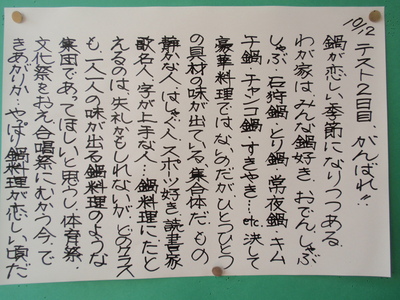 10/12 テスト2日目、がんばれ!!
鍋が恋しい季節になりつつある。
わが家は、みんな鍋好き、おでん、しゃぶ
しゃぶ、石狩鍋、とり鍋、常夜鍋、キム
チ鍋、チャンコ鍋、すきやき…etc、決して
豪華料理ではないのだが、ひとつひとつ
の具材の味が出ている集合体だ。もの
静かな人、はしゃぐ人、スポーツ好き、読書家
歌名人、字が上手な人…鍋料理にたと
えるのは、失礼かもしれないが、どのクラス
も、一人一人の味が出る鍋料理のような
集団であってほしいと思う。体育祭・
文化祭をおえ合唱祭にむかう今、で
きあがりが…やっぱり鍋料理が恋しい頃だ